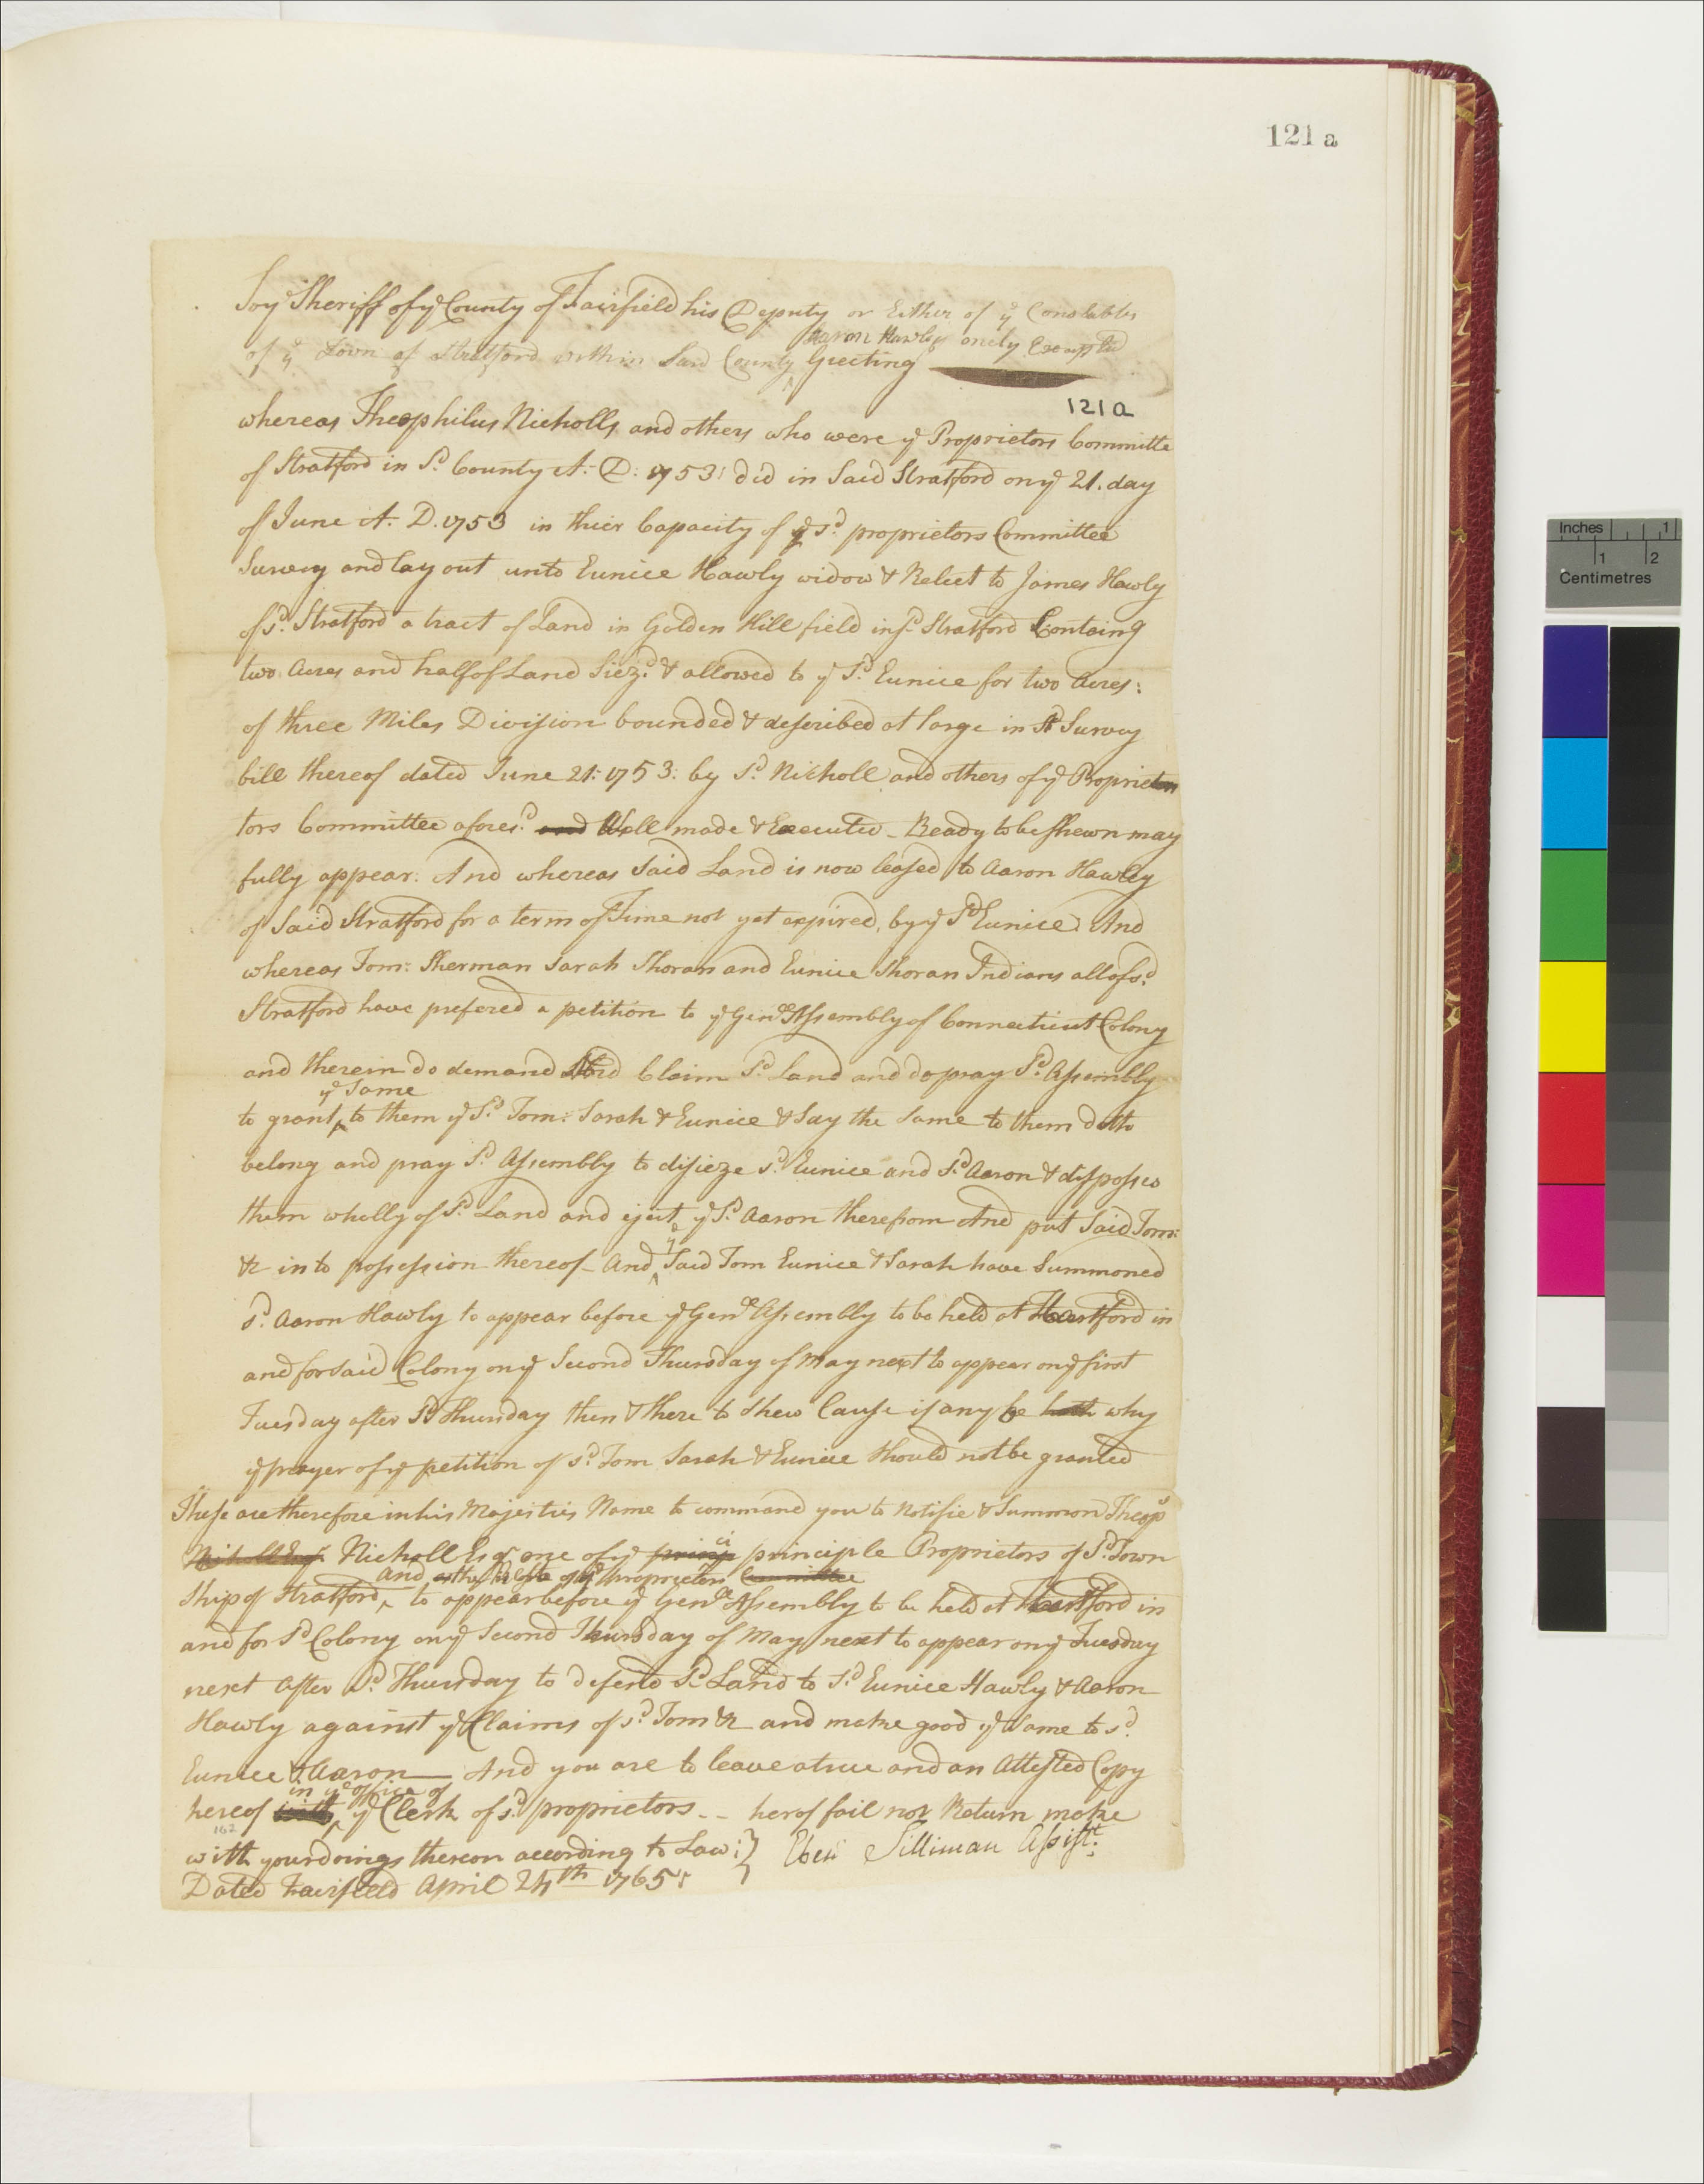 121 a
To yᵉ Sheriff of yᵉ County of Fairfield his Deputy or Either of yᵉ Constables
Aaron Hawley onely Excepted
of yᵉ Town of Stratford within Said County ‸ Greeting
121a
whereas Theophilus Nicholls and others who were yᵉ Proprietors Committe
of Stratford in Sᵈ County A. D. 1753: did in Said Stratford on yᵉ 21. day
of June A. D. 1753 in thier Capacity of yᵉ sᵈ proprietors Committee
Survey and lay out unto Eunice Hawly widow & Relict to James Hawly
of sᵈ Stratford a tract of Land in Golden Hill field in sᵈ Stratford Containg
two Acres and half of Land Siezᵈ & allowed to yᵉ Sᵈ Eunice for two Acres:
of three Miles Division bounded & described at large in Sᵈ Survey
bill thereof dated June 21: 1753: by Sᵈ Nicholl and others of yᵉ Proprie
tors Committee aforesᵈ and Well made & Executed - Ready to be Shewn may
fully appear. And whereas Said Land is now leased to Aaron Hawley
of Said Stratford for a term of Time not yet expired, by yᵉ Sᵈ Eunice And
whereas Tom: Sherman Sarah Shoran and Eunice Shoran Indians all of sᵈ
Stratford have prefered a petition to yᵉ Genˡˡ Assembly of Connecticut Colony
and therein do demand and Claim Sᵈ Land and do pray Sᵈ Assembly
yᵉ Same
to grant ‸ to them yᵉ Sᵈ Tom: Sarah & Eunice & Say the Same to them doth
belong and pray Sᵈ Assembly to disieze sᵈ Eunice and Sᵈ Aaron & disposses
them wholly of Sᵈ Land and eject yᵉ Sᵈ Aaron therefrom And put Said Tom:
yᵉ
&c into possession thereof - And ‸ Said Tom Eunice & Sarah have Summoned
sᵈ Aaron Hawly to appear before yᵉ Genˡˡ Assembly to be held at Hartford in
and for Said Colony on yᵉ Second Thursday of May next to appear on yᵉ first
Tuesday after Sᵈ Thursday then & there to Shew Cause if any he hath why
yᵉ prayer of yᵉ petition of sᵈ Tom Sarah & Eunice Should not be granted
These are therefore in his Majesties Name to command you to Notifie & Summon Theopˢ
Nicholl Esqʳ Nicholl Esqʳ one of yᵉ princip principle Proprietors of Sᵈ Town
And yᵉ Proprietors Committee
Ship of Stratford ‸ to appear before yᵉ Genˡˡ Assembly to be held at Hartford in
and for Sᵈ Colony on yᵉ Second Thursday of May next to appear on yᵉ Tuesday
next After Sᵈ Thursday to defend Sᵈ Land to Sᵈ Eunice Hawly & Aaron
Hawly against yᵉ Claims of sᵈ Tom &c and make good yᵉ Same to sᵈ
Eunice & Aaron — And you are to leave a true and an Attested Copy
in yᵉ office of
hereof with ‸ yᵉ Clerk of sᵈ proprietors - - herof fail not Return make
162
with your doings thereon according to Law:} Eben Silliman Assistᵗ:
Dated Fairfield April 24ᵗʰ 1765:
Inches 1
1 2
Centimetres